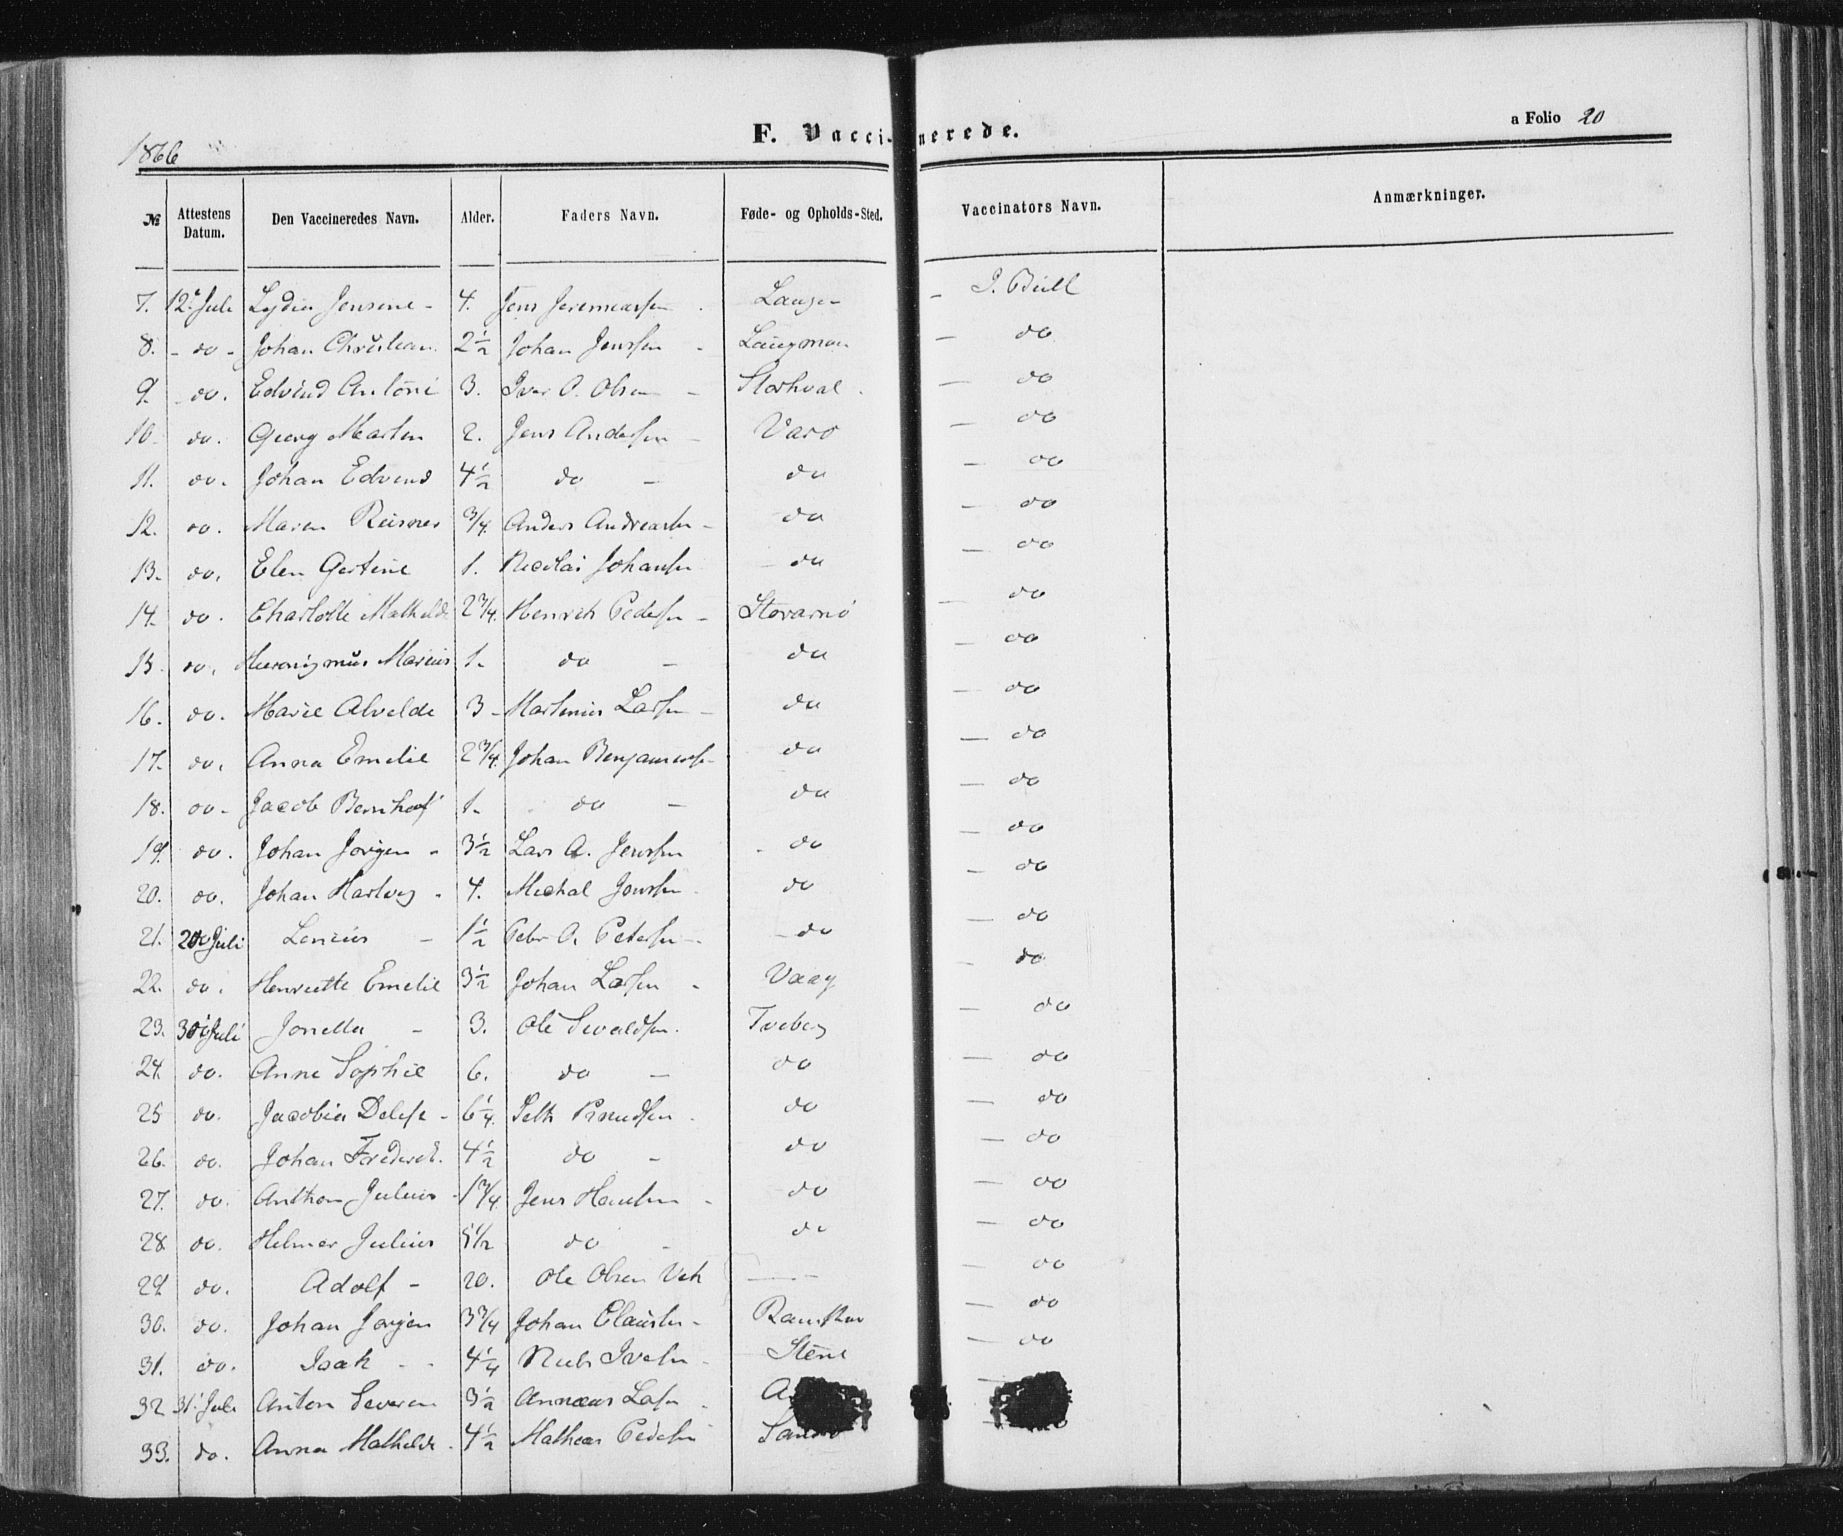 1866
F. Vaccinerede.
a Folio 20
№ Attestens Datum. Den Vaccineredes Navn. Alder. Faders Navn. Føde- og Opholds-Sted. Vaccinators Navn. Anmærkninger.
7. 12. Juli Lydia Jensine - 4. Jens Jeremiassen - J. Bull
8. - do - Johan Christian 2½ Johan Jenssen - - do
9. - do. Edvind Antoni 3. Iver P. Olsen - Storhval. - do
10. do. Georg Martin 2. Jens Andersen - Varø - do
11. do. Johan Edvend 4½ do - do - do
12. do. Maren 3/4. Anders Andreassen - do - do
13. do. Elen Gertine 1. Nicolai Johansen - do - do
14. do. Charlotte Mathilde 2 3/4. Henrich Pedersen - Storarnö - do
15. do. Hieronigmus Marius 1. do - do - do
16. do. Marie Alvilde 3 - Martinius Larsen - do - do
17. do. Anna Emelie 2 3/4. Johan Benjaminsen - do - do
18. do - Jacob Bernhof 1 - do - do - do
19. do. Johan Jørgen - 3½ Lars A. Jenssen - do - do
20. do. Johan Hartvig - 4. Michal Jonssen - do - do
21. 20 Juli - 1½ Peter A. Petersen - - do - do
22. do. Henriette Emelie 3½ Johan Larsen - Vaag - do
23. 30 Juli Jonetta - 3. Ole Sivaldsen. Tveberg - do
24. do. Anne Sophie 6. do - do - do
25 do. Jacobia - 6¼. Seth Knudsen - do - do
26. do. Johan Frederik. 4½ do - do - do
27. do. Anthon Julius - 1 3/4. Jens Hansen - do - do
28 do. Helmer Julius 5½ do - do - do
29 do. Adolf - 20. Ole Olsen —— - do
30. do. Johan Jørgen 3 3/4 Johan Claussen - - do
31. do. Isak - - 4¼ Niels Iversen - Stene - do
32 31. Juli Anton Severin 3½ Annæus Larsen - A -
33. do. Anna Mathilde - 4½ Mathias Pedersen Sandø - do